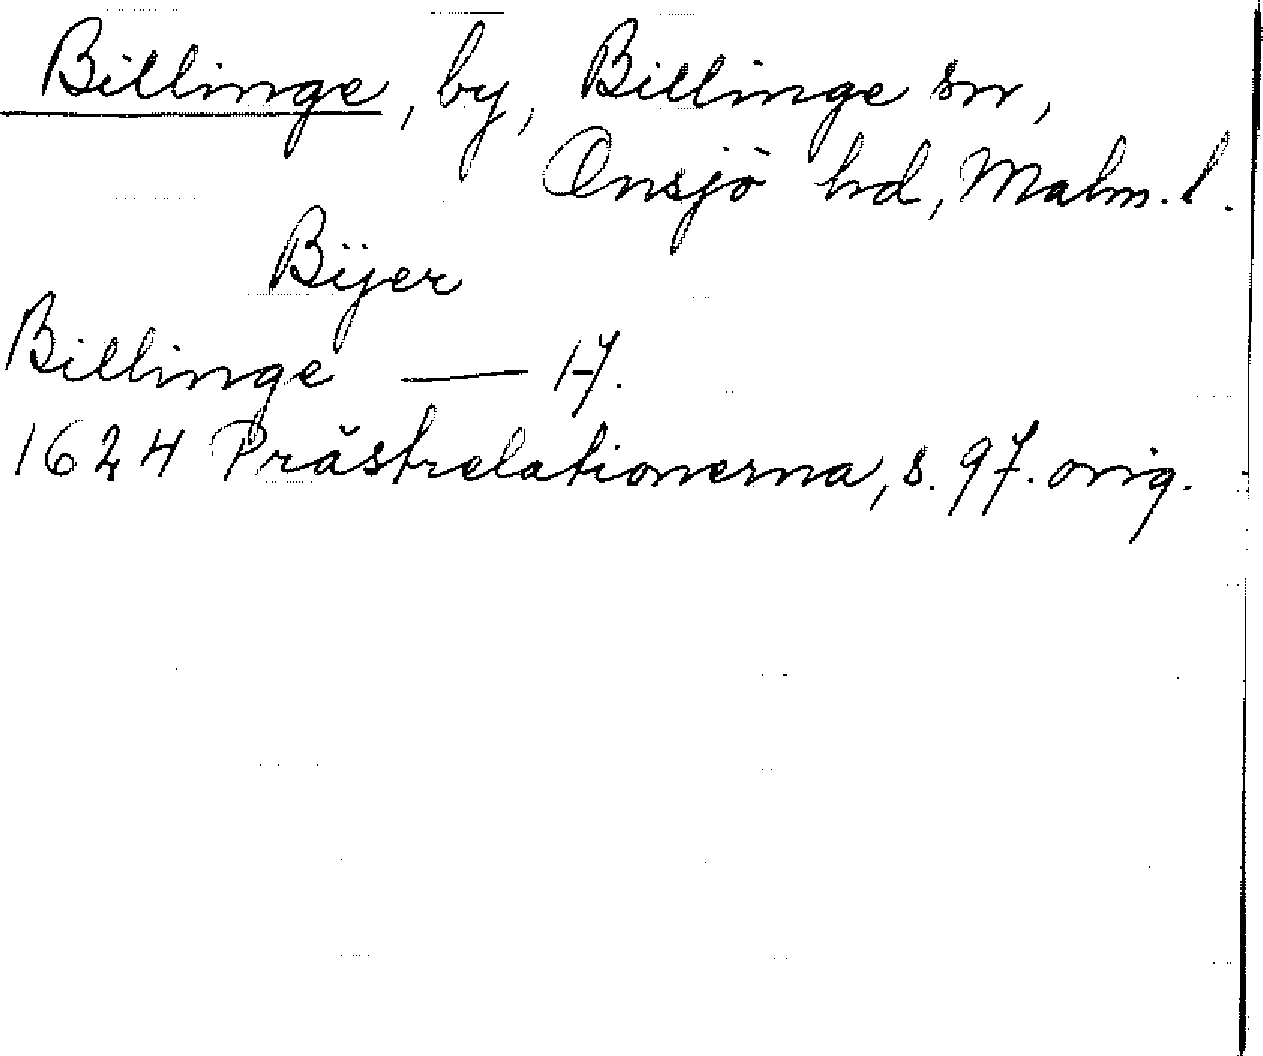 Billinge, by, Billinge sn,
Onsjö hd, Malm. l.
Bÿer
Billinge — 17.
1624 Prästrelationerna, s. 97. orig.